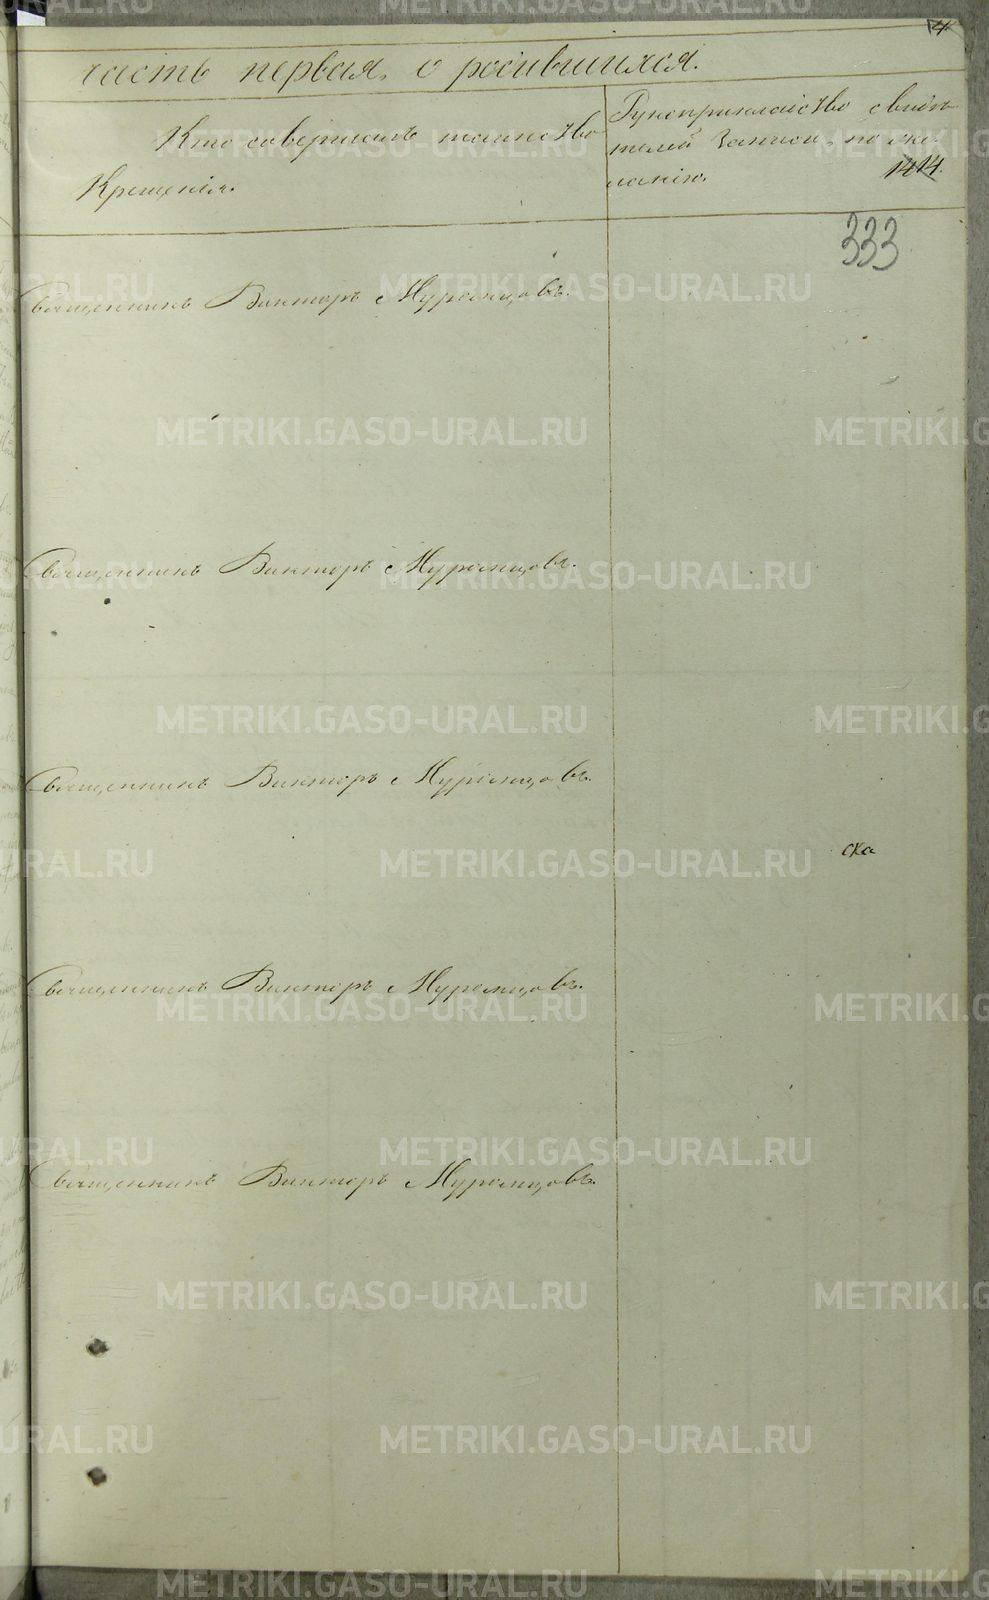 часть первая, о родившихся.
Кто совершалъ таинство
Крещенія.
Рукоприкладство свидѣ-
телей записи, по же-
ланію.
4
1414.
333
Священникъ Викторъ Муромцовъ.
Священникъ Викторъ Муромцовъ.
Священникъ Викторъ Муромцовъ.
ска
Священникъ Викторъ Муромцовъ.
Священникъ Викторъ Муромцовъ.
METRIKI.GASO-URAL.RU